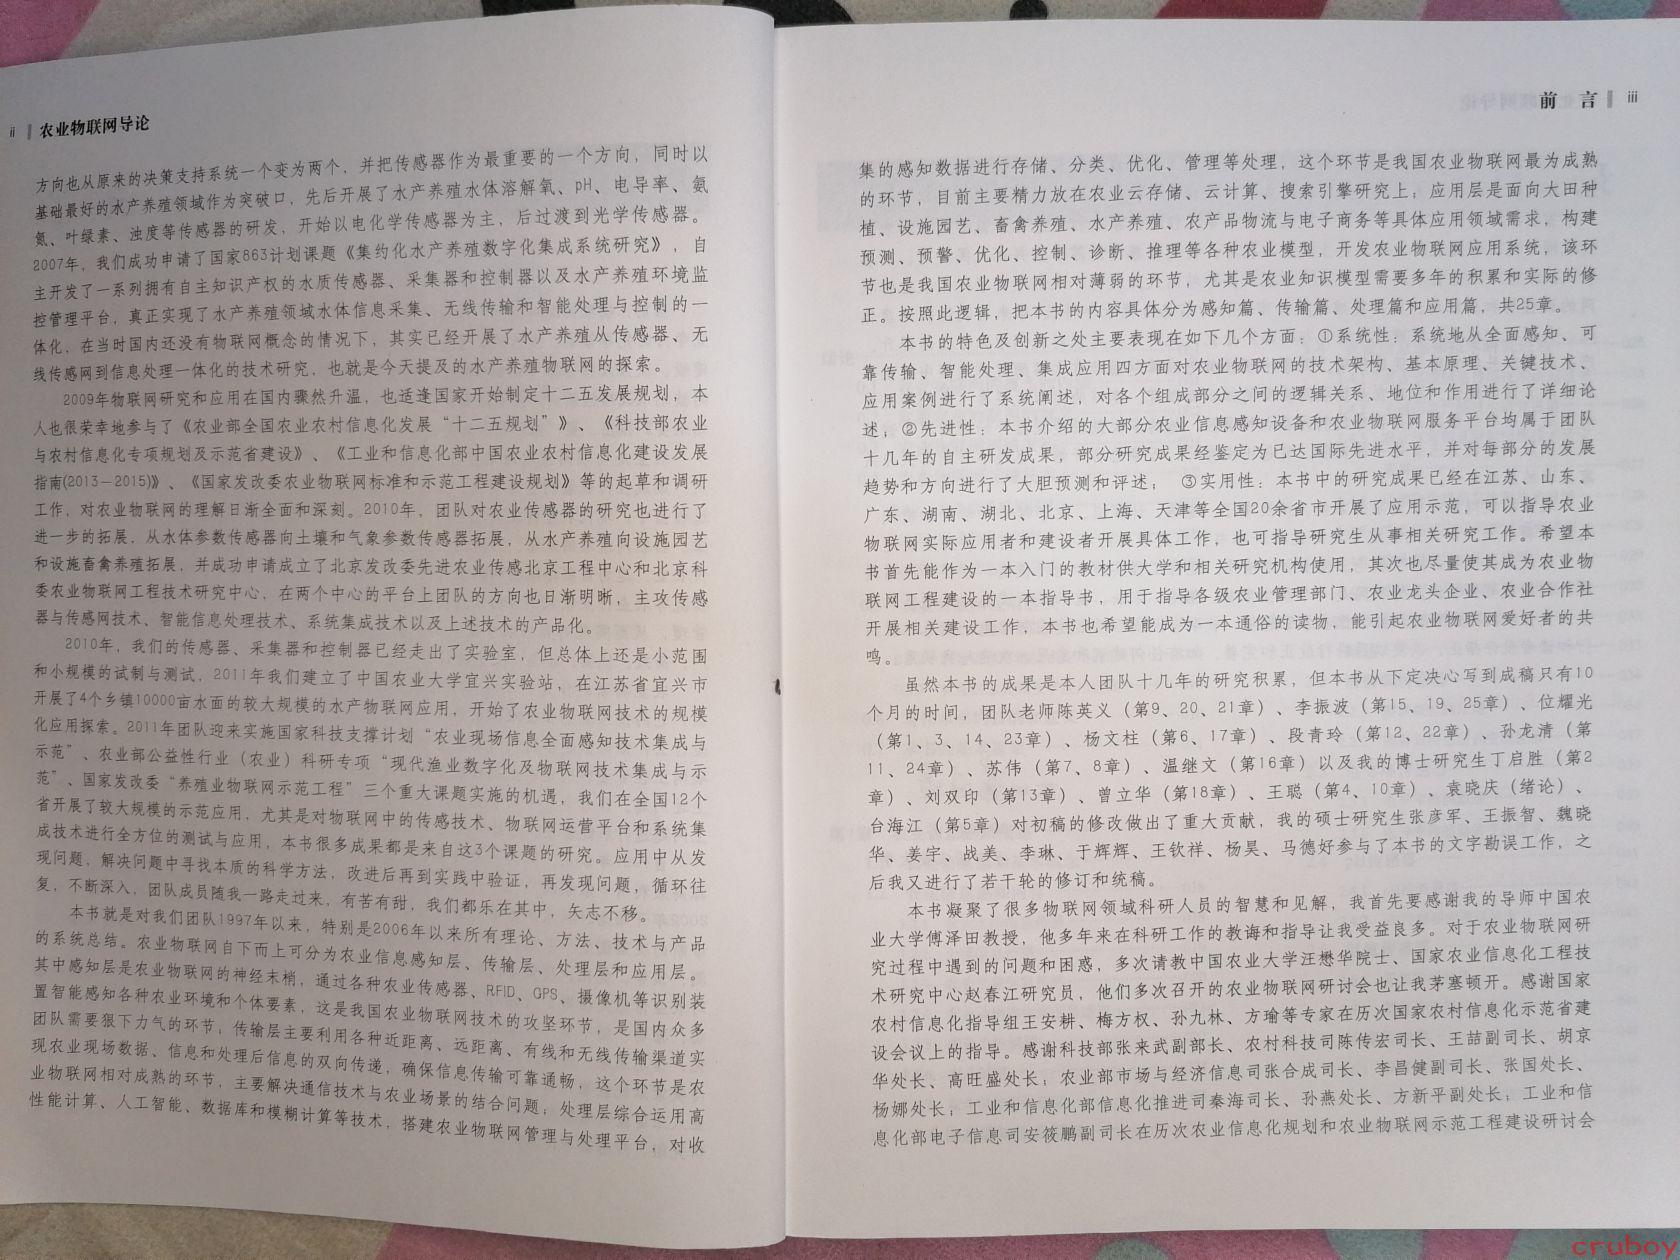 ii 农业物联网导论
方向也从原来的决策支持系统一个变为两个，并把传感器作为最重要的一个方向，同时以
基础最好的水产养殖领域作为突破口，先后开展了水产养殖水体溶解氧、pH、电导率、氨
氮、叶绿素、浊度等传感器的研发，开始以电化学传感器为主，后过渡到光学传感器。
2007年，我们成功申请了国家863计划课题《集约化水产养殖数字化集成系统研究》，自
主开发了一系列拥有自主知识产权的水质传感器、采集器和控制器以及水产养殖环境监
控管理平台，真正实现了水产养殖领域水体信息采集、无线传输和智能处理与控制的一
体化，在当时国内还没有物联网概念的情况下，其实已经开展了水产养殖从传感器、无
线传感网到信息处理一体化的技术研究，也就是今天提及的水产养殖物联网的探索。
2009年物联网研究和应用在国内骤然升温，也适逢国家开始制定十二五发展规划，本
人也很荣幸地参与了《农业部全国农业农村信息化发展“十二五规划”》、《科技部农业
与农村信息化专项规划及示范省建设》、《工业和信息化部中国农业农村信息化建设发展
指南(2013－2015)》、《国家发改委农业物联网标准和示范工程建设规划》等的起草和调研
工作，对农业物联网的理解日渐全面和深刻。2010年，团队对农业传感器的研究也进行了
进一步的拓展，从水体参数传感器向土壤和气象参数传感器拓展，从水产养殖向设施园艺
和设施畜禽养殖拓展，并成功申请成立了北京发改委先进农业传感北京工程中心和北京科
委农业物联网工程技术研究中心，在两个中心的平台上团队的方向也日渐明晰，主攻传感
器与传感网技术、智能信息处理技术、系统集成技术以及上述技术的产品化。
2010年，我们的传感器、采集器和控制器已经走出了实验室，但总体上还是小范围
和小规模的试制与测试，2011年我们建立了中国农业大学宜兴实验站，在江苏省宜兴市
开展了4个乡镇10000亩水面的较大规模的水产物联网应用，开始了农业物联网技术的规模
化应用探索。2011年团队迎来实施国家科技支撑计划“农业现场信息全面感知技术集成与
示范”、农业部公益性行业（农业）科研专项“现代渔业数字化及物联网技术集成与示
范”、国家发改委“养殖业物联网示范工程”三个重大课题实施的机遇，我们在全国12个
省开展了较大规模的示范应用，尤其是对物联网中的传感技术、物联网运营平台和系统集
成技术进行全方位的测试与应用，本书很多成果都是来自这3个课题的研究。应用中从发
现问题，解决问题中寻找本质的科学方法，改进后再到实践中验证，再发现问题，循环往
复，不断深入，团队成员随我一路走过来，有苦有甜，我们都乐在其中，矢志不移。
本书就是对我们团队1997年以来，特别是2006年以来所有理论、方法、技术与产品
的系统总结。农业物联网自下而上可分为农业信息感知层、传输层、处理层和应用层。
其中感知层是农业物联网的神经末梢，通过各种农业传感器、RFID、GPS、摄像机等识别装
置智能感知各种农业环境和个体要素，这是我国农业物联网技术的攻坚环节，是国内众多
团队需要狠下力气的环节；传输层主要利用各种近距离、远距离、有线和无线传输渠道实
现农业现场数据、信息和处理后信息的双向传递，确保信息传输可靠通畅，这个环节是农
业物联网相对成熟的环节，主要解决通信技术与农业场景的结合问题；处理层综合运用高
性能计算、人工智能、数据库和模糊计算等技术，搭建农业物联网管理与处理平台，对收
前 言 iii
集的感知数据进行存储、分类、优化、管理等处理，这个环节是我国农业物联网最为成熟
的环节，目前主要精力放在农业云存储、云计算、搜索引擎研究上；应用层是面向大田种
植、设施园艺、畜禽养殖、水产养殖、农产品物流与电子商务等具体应用领域需求，构建
预测、预警、优化、控制、诊断、推理等各种农业模型，开发农业物联网应用系统，该环
节也是我国农业物联网相对薄弱的环节，尤其是农业知识模型需要多年的积累和实际的修
正。按照此逻辑，把本书的内容具体分为感知篇、传输篇、处理篇和应用篇，共25章。
本书的特色及创新之处主要表现在如下几个方面：①系统性：系统地从全面感知、可
靠传输、智能处理、集成应用四方面对农业物联网的技术架构、基本原理、关键技术、
应用案例进行了系统阐述，对各个组成部分之间的逻辑关系、地位和作用进行了详细论
述；②先进性：本书介绍的大部分农业信息感知设备和农业物联网服务平台均属于团队
十几年的自主研发成果，部分研究成果经鉴定为已达国际先进水平，并对每部分的发展
趋势和方向进行了大胆预测和评述； ③实用性：本书中的研究成果已经在江苏、山东、
广东、湖南、湖北、北京、上海、天津等全国20余省市开展了应用示范，可以指导农业
物联网实际应用者和建设者开展具体工作，也可指导研究生从事相关研究工作。希望本
书首先能作为一本入门的教材供大学和相关研究机构使用，其次也尽量使其成为农业物
联网工程建设的一本指导书，用于指导各级农业管理部门、农业龙头企业、农业合作社
开展相关建设工作，本书也希望能成为一本通俗的读物，能引起农业物联网爱好者的共
鸣。
虽然本书的成果是本人团队十几年的研究积累，但本书从下定决心写到成稿只有10
个月的时间，团队老师陈英义（第9、20、21章）、李振波（第15、19、25章）、位耀光
（第1、3、14、23章）、杨文柱（第6、17章）、段青玲（第12、22章）、孙龙清（第
11、24章）、苏伟（第7、8章）、温继文（第16章）以及我的博士研究生丁启胜（第2
章）、刘双印（第13章）、曾立华（第18章）、王聪（第4、10章）、袁晓庆（绪论）、
台海江（第5章）对初稿的修改做出了重大贡献，我的硕士研究生张彦军、王振智、魏晓
华、姜宇、战美、李琳、于辉辉、王钦祥、杨昊、马德好参与了本书的文字勘误工作，之
后我又进行了若干轮的修订和统稿。
本书凝聚了很多物联网领域科研人员的智慧和见解，我首先要感谢我的导师中国农
业大学傅泽田教授，他多年来在科研工作的教诲和指导让我受益良多。对于农业物联网研
究过程中遇到的问题和困惑，多次请教中国农业大学汪懋华院士、国家农业信息化工程技
术研究中心赵春江研究员，他们多次召开的农业物联网研讨会也让我茅塞顿开。感谢国家
农村信息化指导组王安耕、梅方权、孙九林、方瑜等专家在历次国家农村信息化示范省建
设会议上的指导。感谢科技部张来武副部长、农村科技司陈传宏司长、王喆副司长、胡京
华处长、高旺盛处长；农业部市场与经济信息司张合成司长、李昌健副司长、张国处长、
杨娜处长；工业和信息化部信息化推进司秦海司长、孙燕处长、方新平副处长；工业和信
息化部电子信息司安筱鹏副司长在历次农业信息化规划和农业物联网示范工程建设研讨会
cruboy